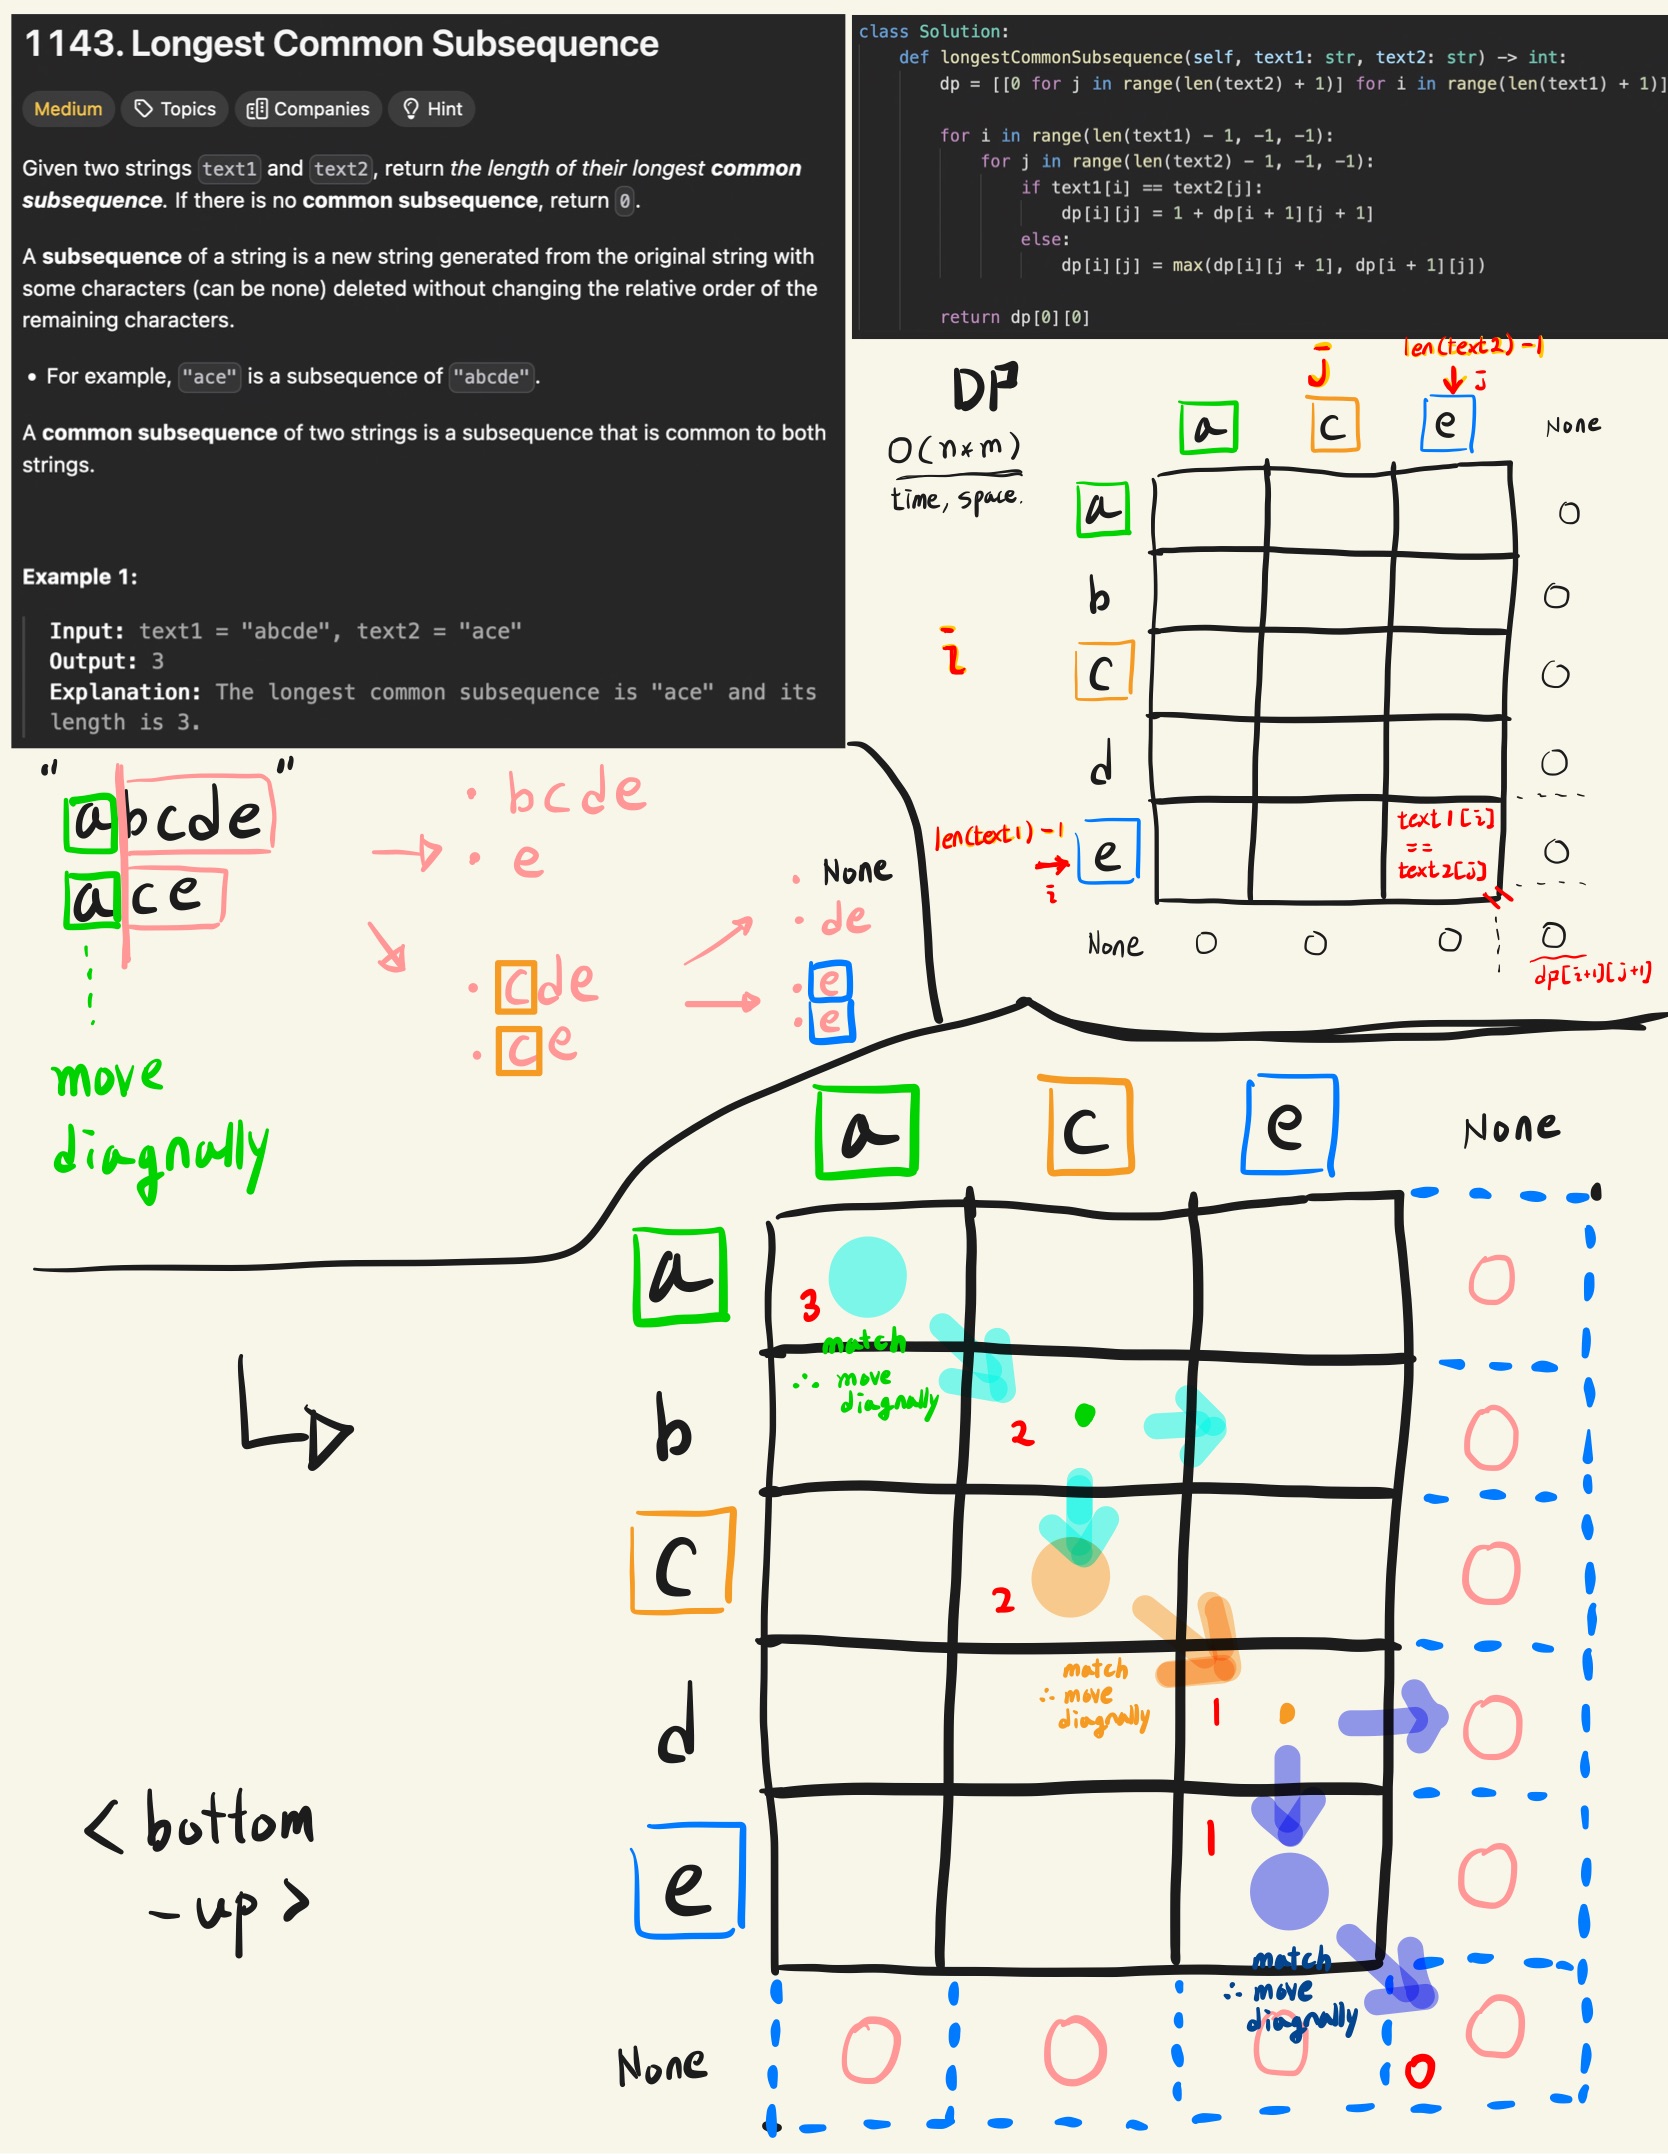 1143. Longest Common Subsequence
Medium Topics Companies Hint
Given two strings text1 and text2, return the length of their longest common
subsequence. If there is no common subsequence, return 0.
A subsequence of a string is a new string generated from the original string with
some characters (can be none) deleted without changing the relative order of the
remaining characters.
• For example, "ace" is a subsequence of "abcde".
A common subsequence of two strings is a subsequence that is common to both
strings.
Example 1:
Input: text1 = "abcde", text2 = "ace"
Output: 3
Explanation: The longest common subsequence is "ace" and its
length is 3.
class Solution:
def longestCommonSubsequence(self, text1: str, text2: str) -> int:
dp = [[0 for j in range(len(text2) + 1)] for i in range(len(text1) + 1)]
for i in range(len(text1) - 1, -1, -1):
for j in range(len(text2) - 1, -1, -1):
if text1[i] == text2[j]:
dp[i][j] = 1 + dp[i + 1][j + 1]
else:
dp[i][j] = max(dp[i][j + 1], dp[i + 1][j])
return dp[0][0]
DP
O(n*m)
time, space.
j
len(text2) -1
j
a c e None
a 0
b 0
i
c 0
d 0
len(text1) -1
i
e
text1[i]
==
text2[j]
0
None 0 0 0 0
dp[i+1][j+1]
" "
abcde
ace
move
diagnally
• bcde
• e
• cde
• ce
• None
• de
• e
• e
< bottom
-up >
a c e None
a 3 0
match
∴ move
diagnally
b 2 0
c 2 0
match
∴ move
diagnally
d 1 0
e 1 0
match
∴ move
diagnally
None 0 0 0 0 0